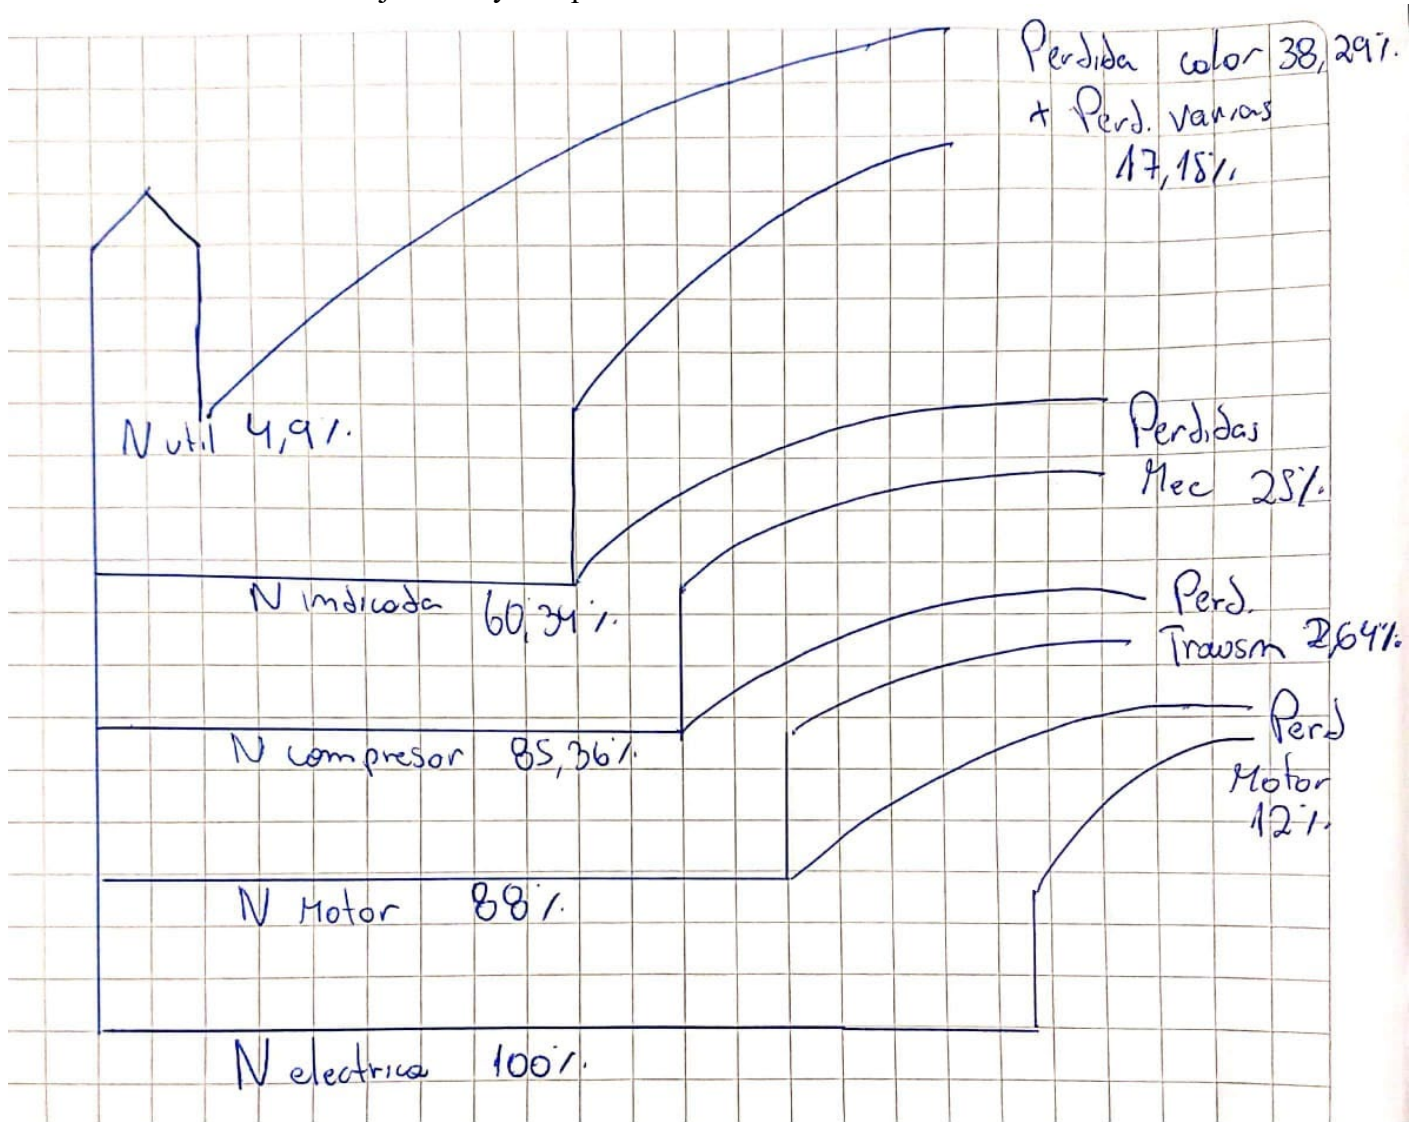 Perdida calor 38,29%
+ Perd. varias
17,15%
N util 4,9%
Perdidas
Mec 25%
N indicada 60,34%
Perd.
Transm 2,64%
N compresor 85,36%
Perd
Motor
12%
N Motor 88%
N electrica 100%